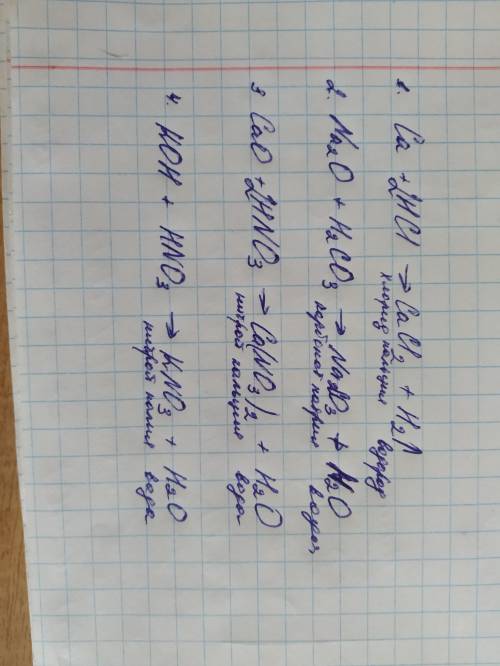 1. Ca + 2HCl → CaCl2 + H2↑
хлорид кальция водород
2. Na2O + H2CO3 → + H2O
натрия вода
3 CaO + 2HNO3 → Ca(NO3)2 + H2O
нитрат кальция вода
4. KOH + HNO3 → KNO3 + H2O
нитрат калия вода